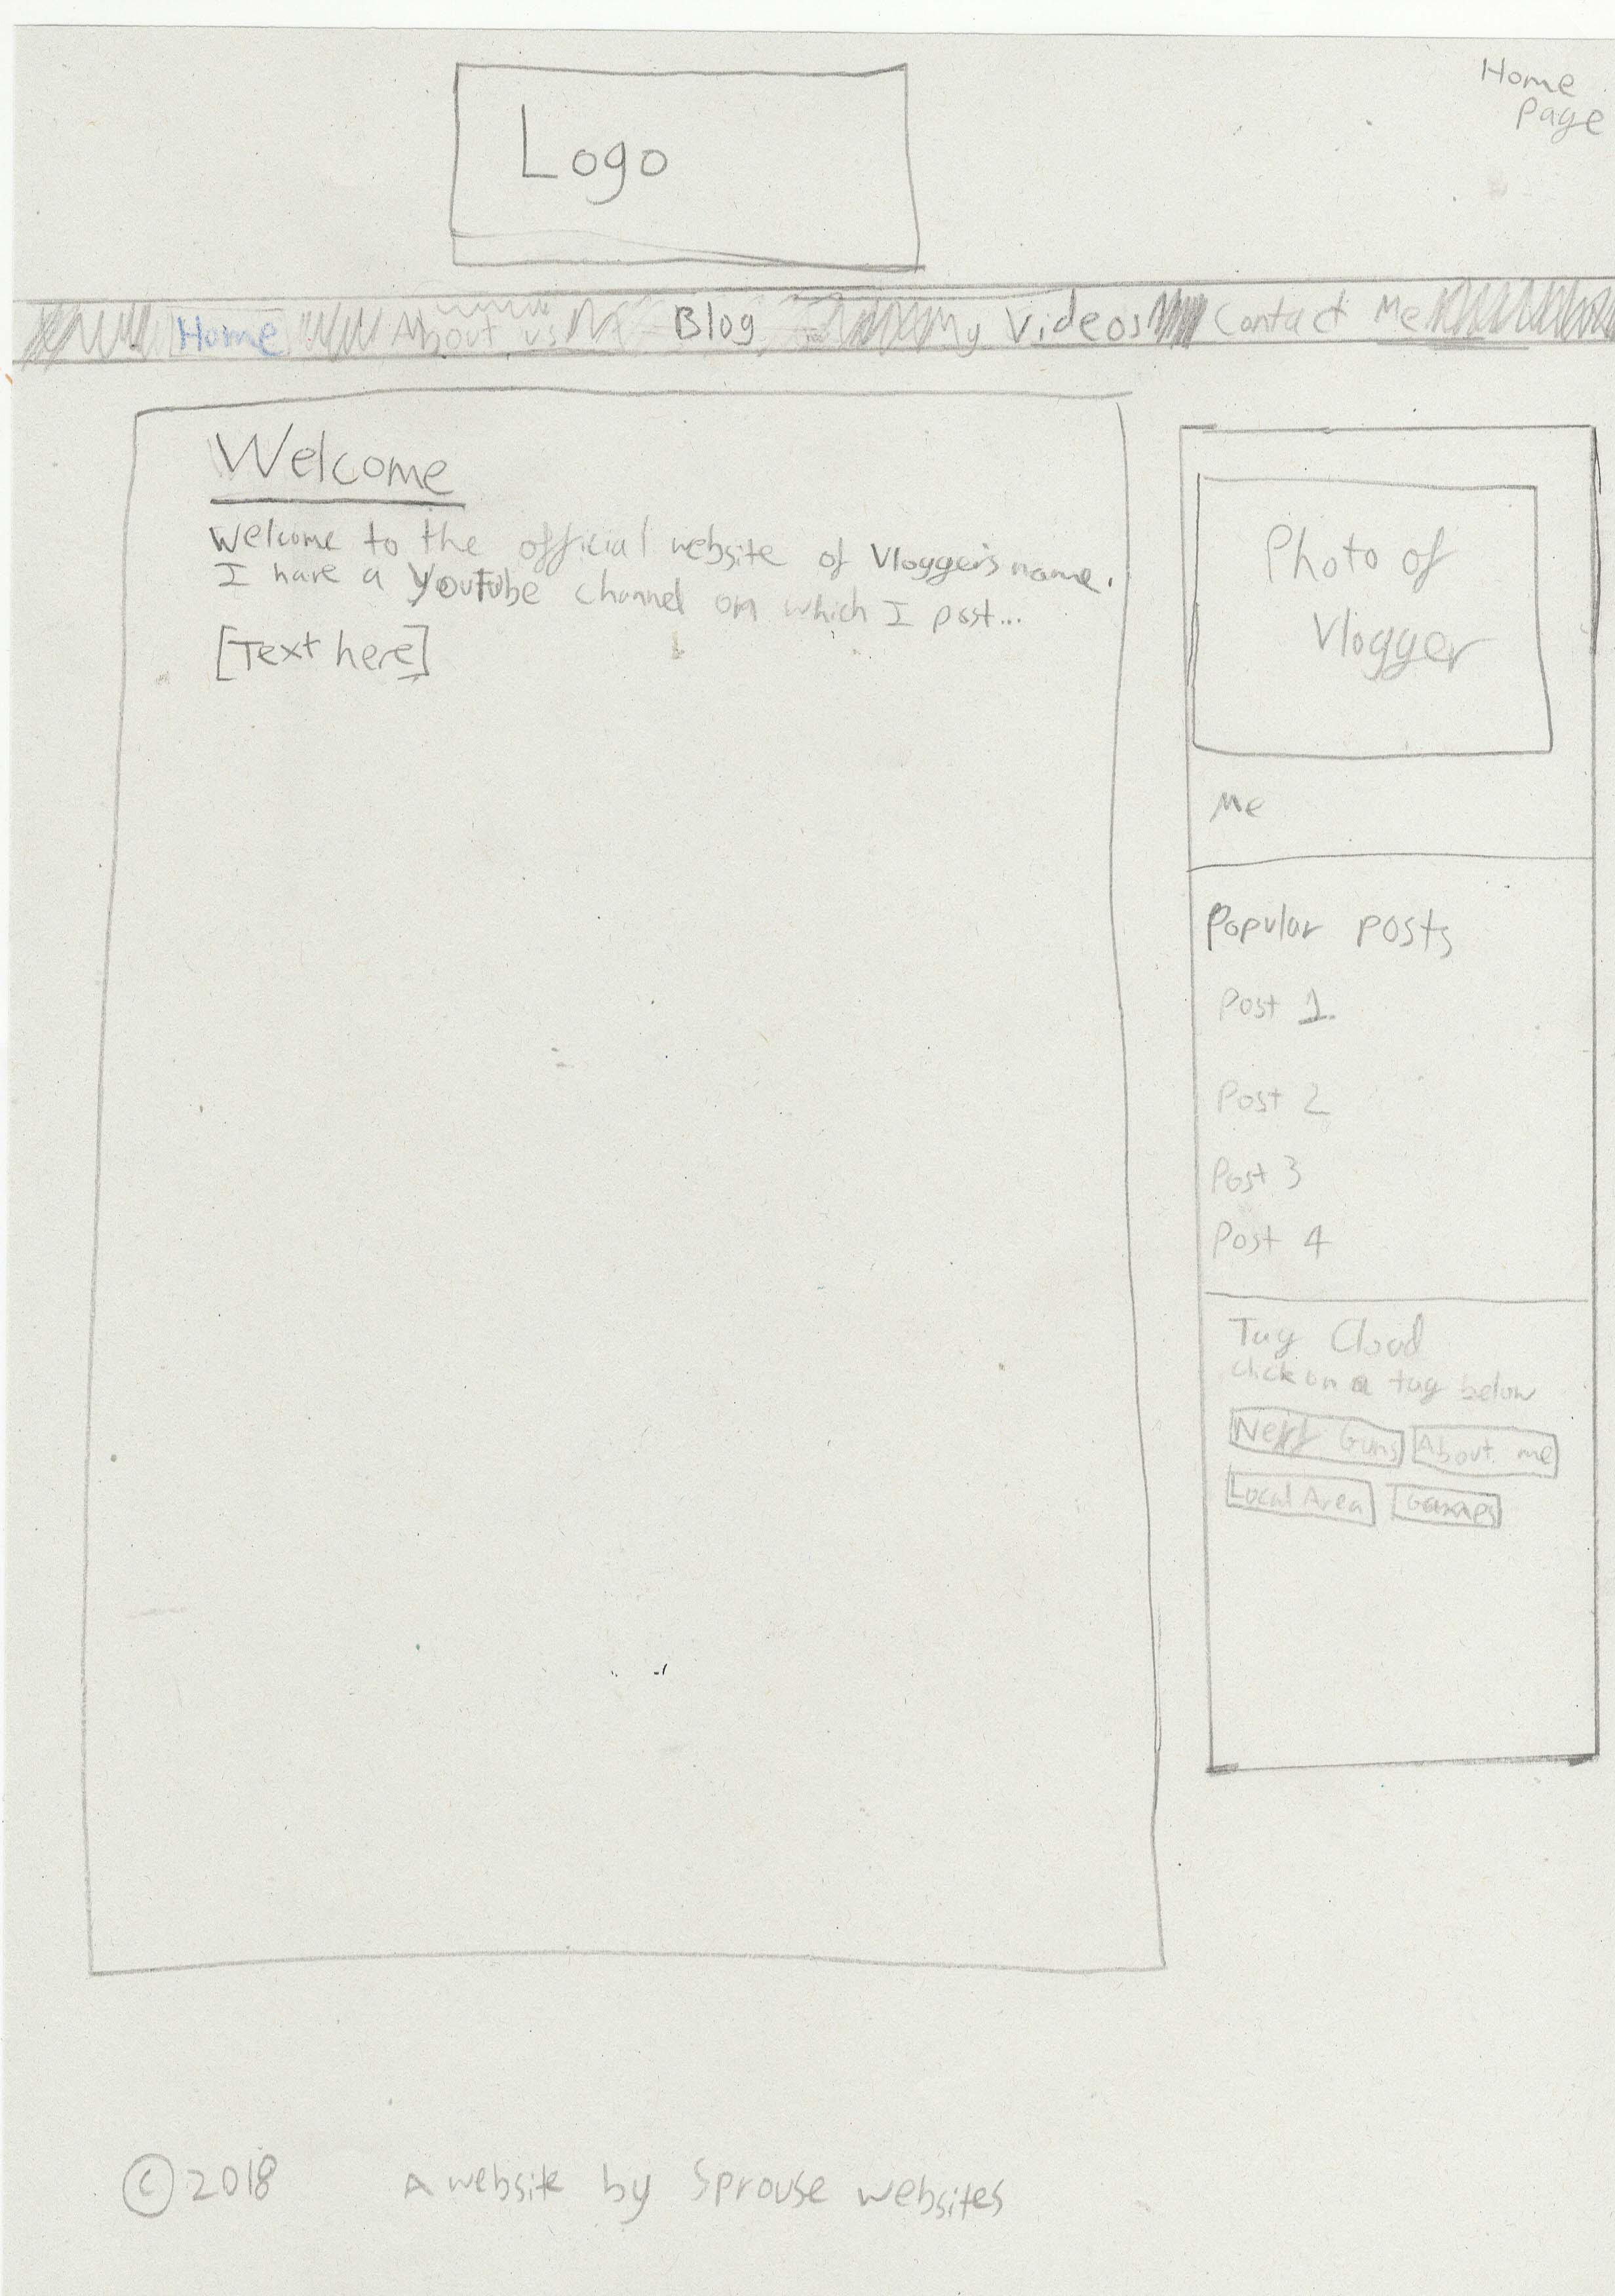 Home
Page
Logo
Home About us Blog My Videos Contact Me
Welcome
Welcome to the official website of Vlogger's name.
I have a Youtube channel on which I post...
[Text here]
Photo of
Vlogger
Me
Popular posts
Post 1
Post 2
Post 3
Post 4
Tag Cloud
Click on a tag below
Nerf Guns About me
Local Area Games
© 2018 A website by Sprouse websites